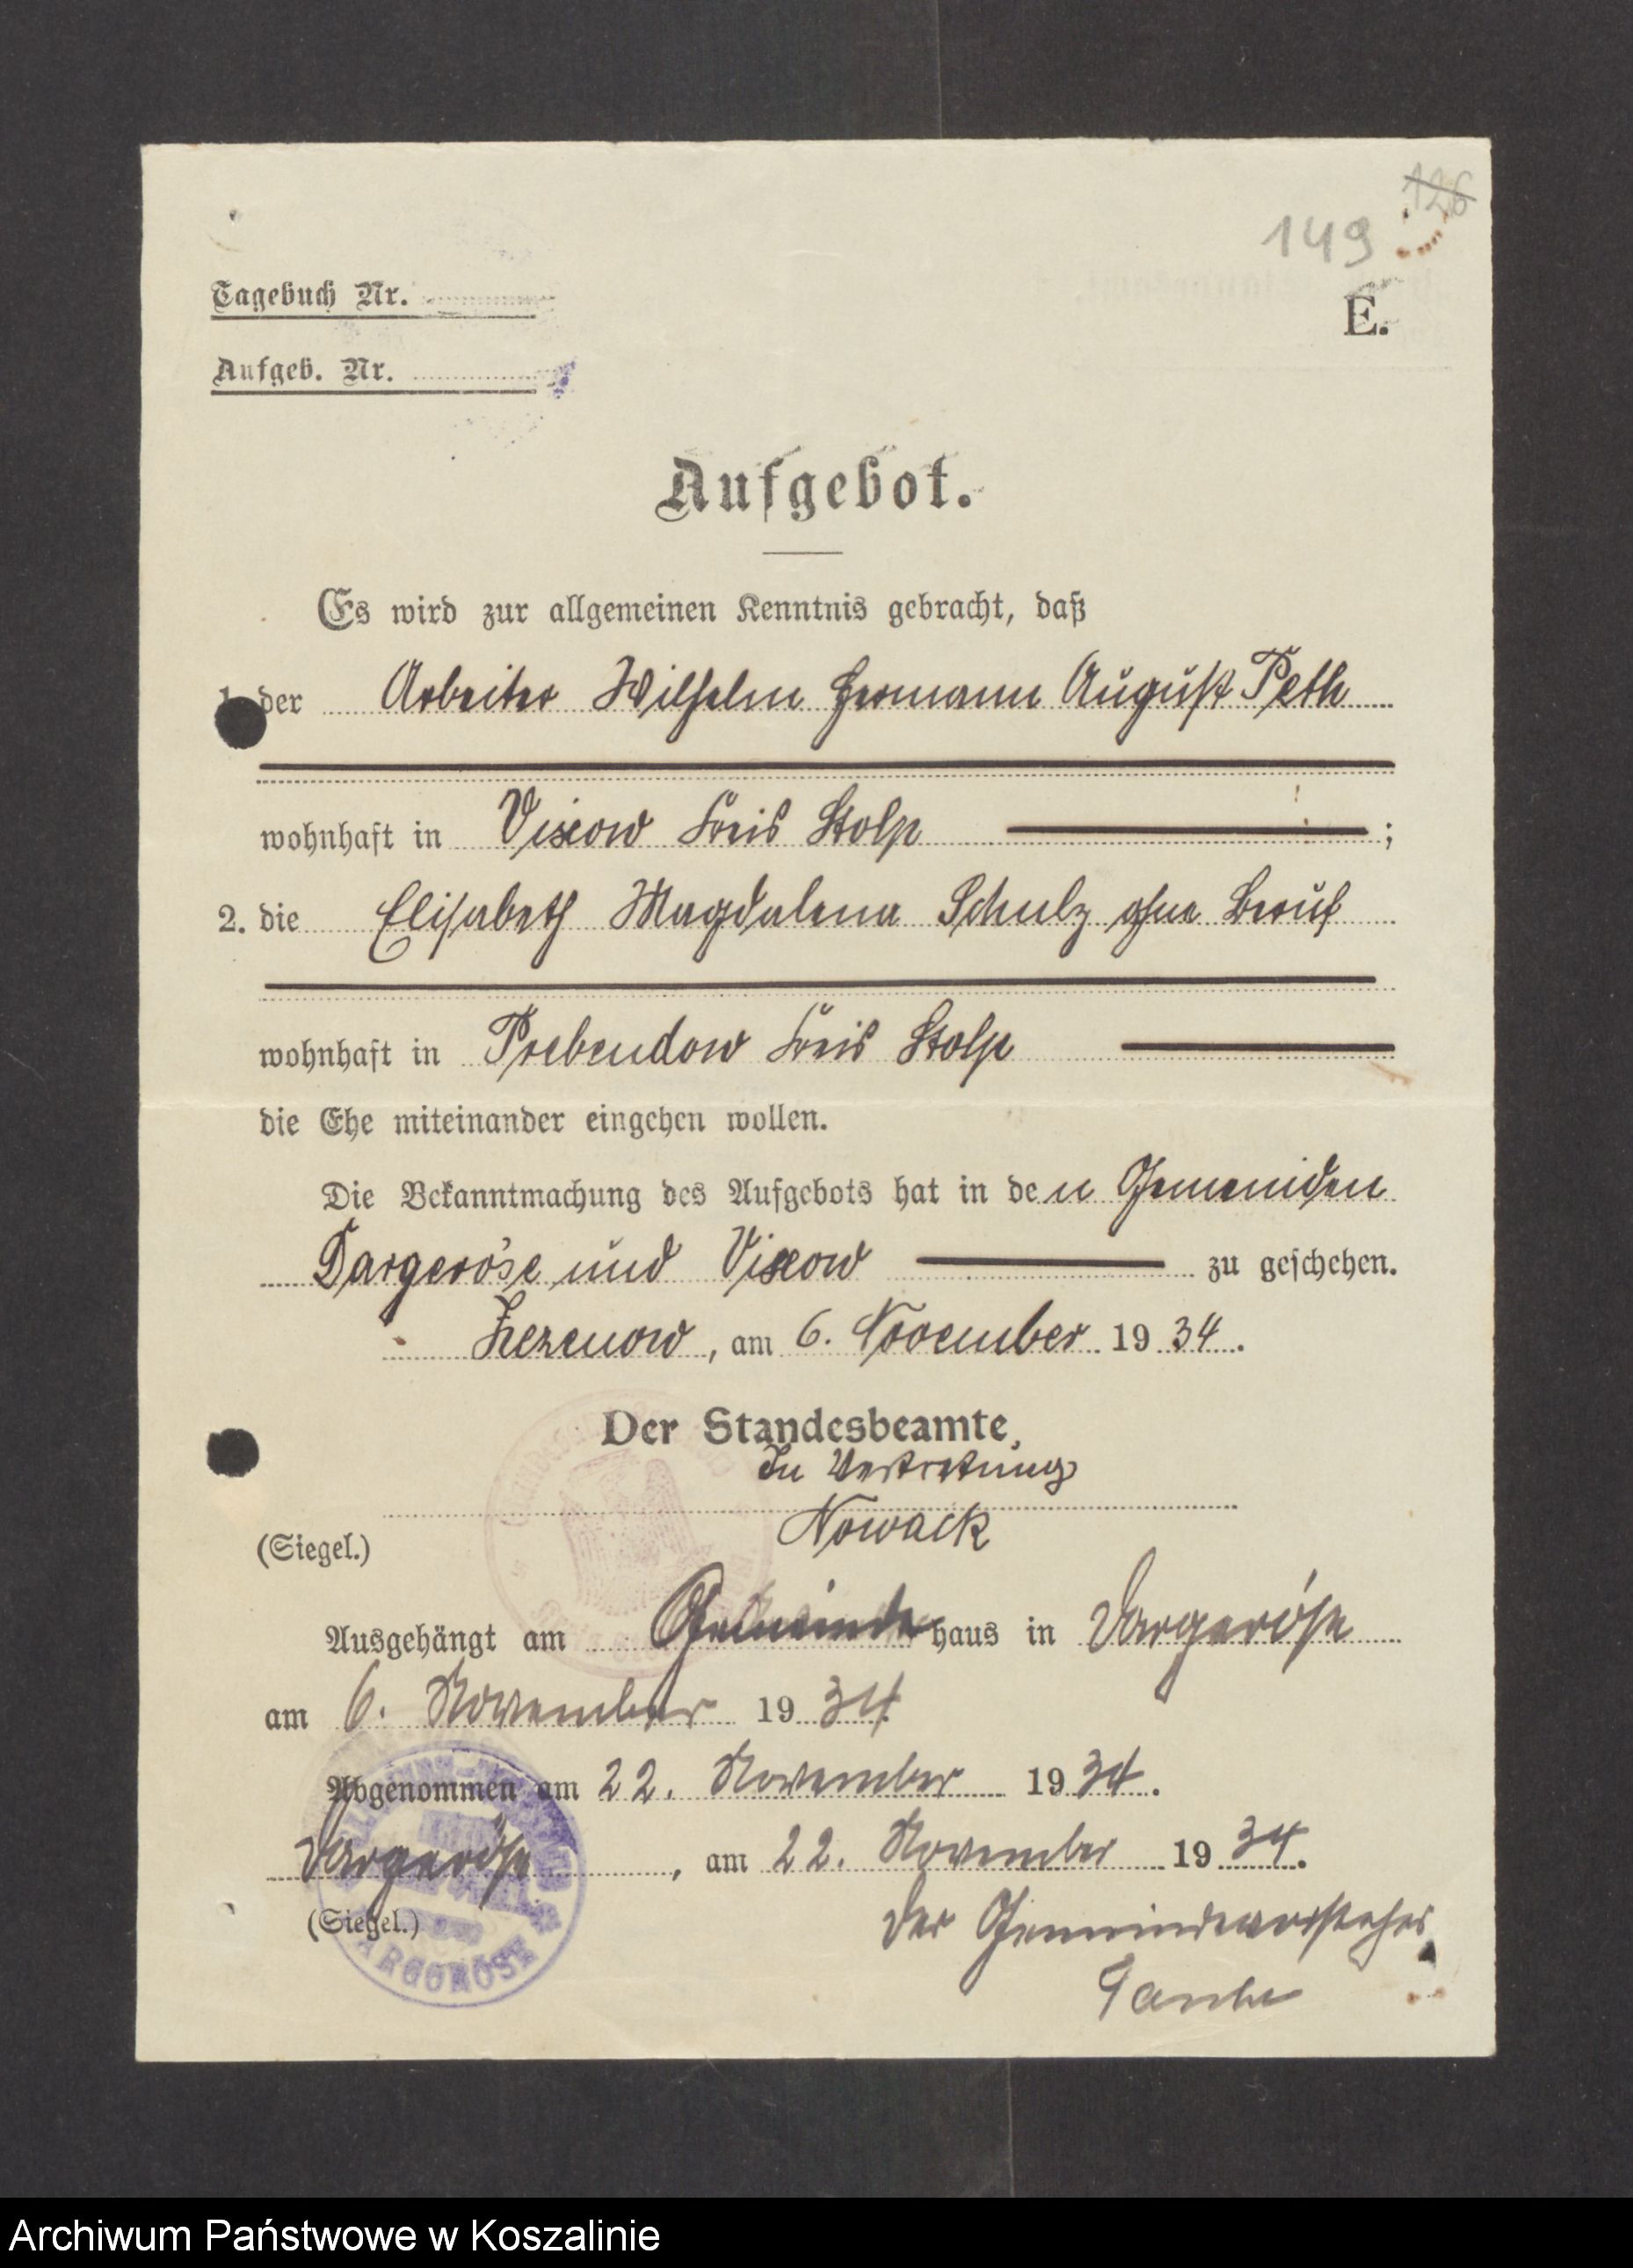 126
149
Tagebuch Nr.
E.
Aufgeb. Nr.
Aufgebot.
Es wird zur allgemeinen Kenntnis gebracht, daß
1. der Arbeiter Wilhelm Hermann August Peth
wohnhaft in Vixow Kreis Stolp ;
2. die Elisabeth Magdalena Schulz ohne Beruf
wohnhaft in Prebendow Kreis Stolp
die Ehe miteinander eingehen wollen.
Die Bekanntmachung des Aufgebots hat in den Gemeinden
Dargeröse und Vixow zu geschehen.
Zezenow, am 6. November 1934.
Der Standesbeamte,
In Vertretung
Nowack
(Siegel.)
Ausgehängt am Gemeindehaus in Dargeröse
am 6. November 1934
Abgenommen am 22. November 1934.
Dargeröse, am 22. November 1934.
(Siegel.)
Der Gemeindevorsteher
Archiwum Państwowe w Koszalinie